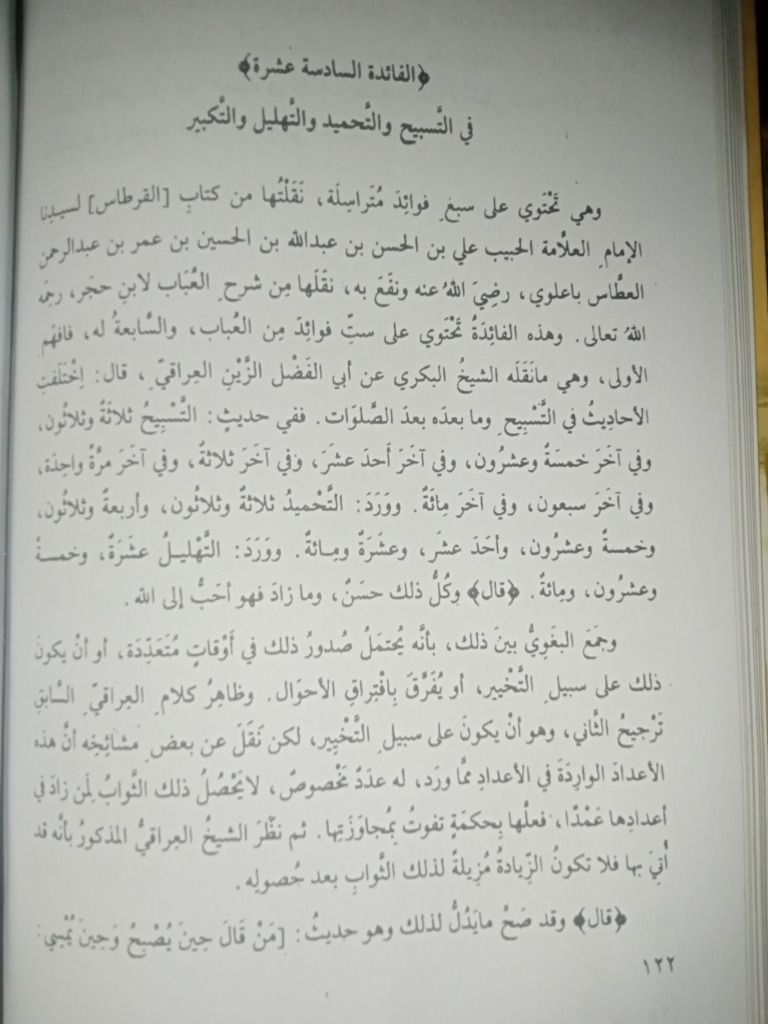 ﴿الفائدة السادسة عشرة﴾
في التَّسبيح والتَّحميد والتَّهليل والتَّكبير
وهي تَحْتَوي على سبعِ فوائِدَ مُتَراسِلَة، نَقَلْتُها من كتابِ [القرطاس] لسيدِنا
الإمامِ العلاَّمة الحبيب علي بن الحسن بن عبدالله بن الحسين بن عمر بن عبدالرحمن
العطَّاس باعلوي، رضِيَ اللهُ عنه ونفَعَ به، نقَلَها مِن شرحِ العُبَاب لابنِ حجَر، رحِمَه
اللهُ تعالى. وهذه الفائِدَةُ تَحْتَوي على ستِّ فوائِدَ مِن العُباب، والسَّابعةُ له، فافهَم
الأولى، وهي مانَقَلَه الشيخُ البكري عن أبي الفَضْل الزَّيْنِ العِراقيِّ، قال: إخْتَلَفتِ
الأحادِيثُ في التَّسْبِيحِ وما بعدَه بعدَ الصَّلوَات. ففي حديثٍ: التَّسْبِيحُ ثلاثَةٌ وثلاثُون،
وفي آخَرَ خمسَةٌ وعشرُون، وفي آخَرَ أَحدَ عشَرَ، وفي آخَرَ ثلاثةٌ، وفي آخَرَ مرَّةٌ واحِدَة،
وفي آخَرَ سبعون، وفي آخَرَ مِائَةٌ. ووَرَدَ: التَّحْميدُ ثلاثةٌ وثلاثُون، وأربعةٌ وثلاثُون،
وخمسةٌ وعشرُون، وأحَدَ عشَر، وعشَرَةٌ ومِائةٌ. ووَرَدَ: التَّهْليلُ عشَرَةٌ، وخمسةٌ
وعشرُون، ومِائةٌ. ﴿قال﴾ وكُلُّ ذلك حسَنٌ، وما زادَ فهو أحَبُّ إلى الله.
وجمَعَ البغَوِيُّ بينَ ذلك، بأنَّه يُحتمَلُ صُدورُ ذلك في أَوْقاتٍ مُتَعَدِّدَة، أو أنْ يكونَ
ذلك على سبيلِ التَّخْيير، أو يُفَرَّقَ بِافْتِراقِ الأحوَال. وظاهِرُ كلامِ العِراقيِّ السَّابقِ
تَرْجيحُ الثَّاني، وهو أنْ يكونَ على سبيلِ التَّخْيِير، لكن نَقَلَ عن بعضِ مشائِخِه أنَّ هذه
الأعدادَ الوارِدَةَ في الأعدادِ ممَّا ورَد، له عدَدٌ مَخْصوصٌ، لايَحْصُلُ ذلك الثَّوابُ لِمَن زادَ في
أعدادِها عَمْدًا، فعلَّها بِحكمَةٍ تفوتُ بِمُجاوَزَتِها. ثم نظَّرَ الشيخُ العِراقيُّ المذكورُ بأنَّه قد
أُتِيَ بها فلا تكونُ الزِّيادةُ مُزِيلةً لذلك الثَّوابِ بعد حُصولِه.
﴿قال﴾ وقد صَحَّ مايَدُلُّ لذلك وهو حديثُ: [مَنْ قَالَ حِينَ يُصْبِحُ وَحِينَ يُمْسِي:
١٢٢